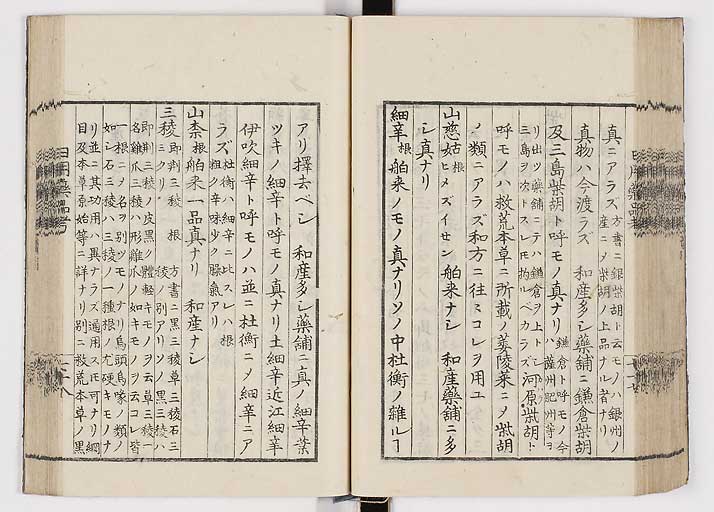 真ニアラズ 方書ニ銀柴胡ト云モノハ銀州ノ
産ニメ柴胡ノ上品ナル者ナリ
真物ハ今渡ラズ 和産多シ藥舗ニ鎌倉柴胡
及三島柴胡ト呼モノ真ナリ 鎌倉ト呼モノ今
薩州肥州等ヨ
リ出ツ藥舗ニテハ鎌倉ヲ上トシ
三島ヲ次トスレモ拘ルベカラズ 河原柴胡ト
呼モノハ救荒本草ニ所載ノ蔞陵菜ニノ柴胡
ノ類ニアラズ和方ニ往々コレヲ用ユ
山慈姑 根 ヒメズイセン 舶来ナシ 和産藥舗ニ多
シ真ナリ
細辛 根 舶来ノモノ真ナリソノ中杜衡ノ雜ルヿ
アリ擇去ベシ 和産多シ藥舗ニ真ノ細辛葉
ツキノ細辛ト呼モノ真ナリ土細辛近江細辛
伊吹細辛ト呼モノハ並ニ杜衡ニメ細辛ニア
ラズ 杜衡ハ細辛ニ比スレハ根
粗ク辛味少ク臊氣アリ
山柰 根 舶来一品真ナリ 和産ナシ
三稜 即荆三稜 根
ミクリ 方書ニ黒三稜草三稜石三
稜ノ別アリソノ黒三稜ハ
即荆三稜ノ皮黒ク體軽キモノヲ云草三稜一
名雞爪三稜ハ形雞爪ノ如キモノヲ云コレ皆
一根ニメ名ヲ別ツモノナリ烏頭烏喙ノ類ノ
如シ石三稜ハ三稜ノ一種根ノ尤硬キモノナ
リ並ニ其功用ハ異ナラズ通用スモ可ナリ綱
目及本草原始等ニ詳ナリ別ニ救荒本草ノ黒